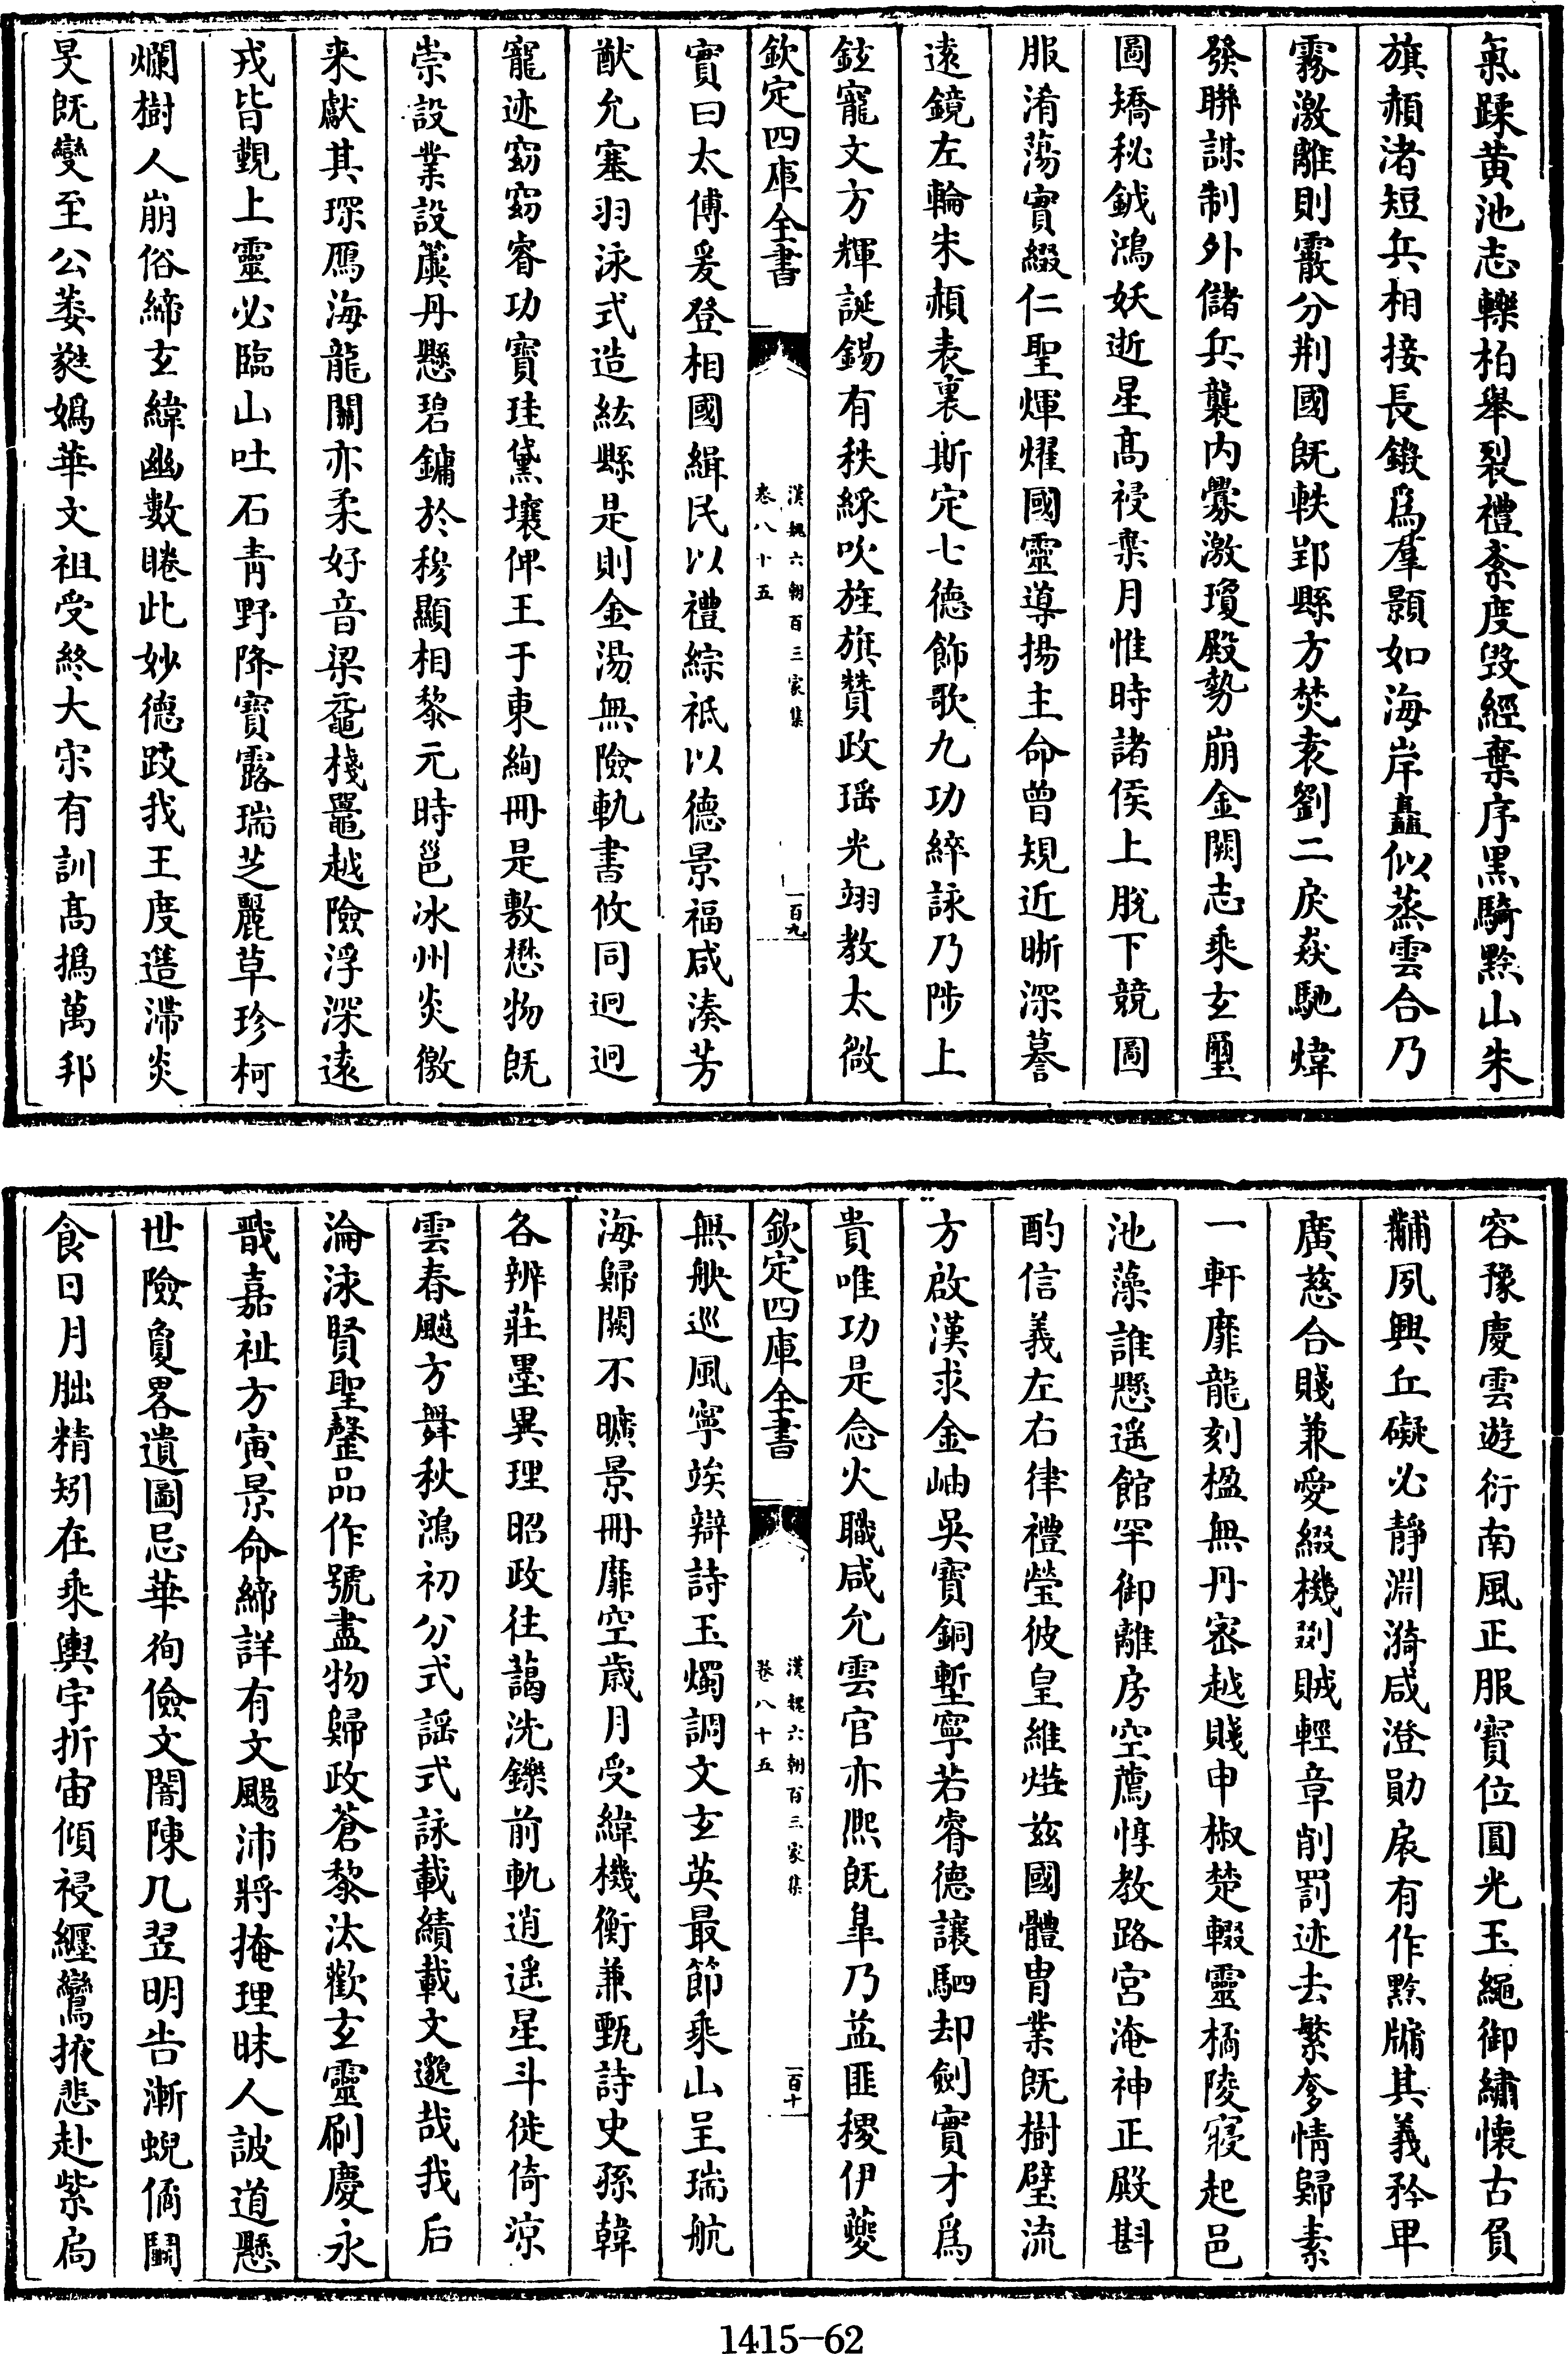 氣蹂黄池志轢柏舉裂禮紊度毁經棄序黒騎黙山朱
旗頳渚短兵相接長鎩爲羣顥如海岸矗似蒸雲合乃
霧激離則霰分荆國既軼郢縣方焚袁劉二戾猋馳煒
發聨謀制外儲兵襲内釁激瓊殿勢崩金闕志乘玄璽
圖矯秘鉞鴻妖逝星髙祲棄月惟時諸侯上脱下競圖
服淆蕩實綴仁聖煇燿國靈導揚主命曾規近晰深謩
逺鏡左輪朱頳表裏斯定七徳飾歌九功綷詠乃陟上
鉉寵文方輝誕錫有秩綵吹旌旗賛政瑶光翊教太微
欽定四庫全書
漢魏六朝百三家集
卷八十五
一百九
實曰太傅爰登相國緝民以禮綜祗以德景福咸湊芳
猷允塞羽泳式造紘縣是則金湯無險軌書攸同迥迥
寵迹窈窈睿功寶珪黛壤俾王于東絢冊是敷懋物既
崇設業設簴丹懸碧鏞於穆顯相黎元時邕冰州炎徼
来獻其琛鴈海龍關亦柔好音梁黿棧鼉越險浮深逺
戎皆覲上靈必臨山吐石青野降寶露瑞芝麗草珍柯
爛樹人崩俗締玄緯幽數睠此妙德跂我王度遰滯炎
旻既變至公萎蕤嬀華文祖受終大宋有訓髙撝萬邦
容豫慶雲遊衍南風正服寳位圓光玉繩御繡懐古負
黼夙興丘礙必静淵漪咸澄勛扆有作黙牖其義矜卑
廣慈合賤兼愛綴機剟賊輕章削罰迹去繁奓情歸素
一軒靡龍刻楹無丹宻越賤申椒楚輟靈橘陵寢起邑
池藻誰懸遥館罕御離房空薦惇教路宫淹神正殿斟
酌信義左右律禮瑩彼皇維燈兹國體胄業既樹璧流
方啟漢求金岫吳寶銅塹寧若睿德讓駟却劍實才爲
貴唯功是念火職咸允雲官亦熈既臯乃益匪稷伊夔
欽定四庫全書
漢魏六朝百三家集
卷八十五
一百十
無舦巡風寧竢辯詩玉燭調文玄英最節乘山呈瑞航
海歸闕不曠景冊靡空歳月受緯機衡兼甄詩史孫韓
各辨莊墨異理昭政往藹洗鑠前軌逍遥星斗徙倚凉
雲春飈方舞秋鴻初分式謡式詠載績載文邈哉我后
淪泳賢聖鑿品作號盡物歸政蒼黎汰歡玄靈刷慶永
戬嘉祉方寅景命締詳有文颺沛將掩理昧人詖道懸
世險夐畧遺圖忌華徇儉文闇陳几翌明告漸蜺僪鬭
食日月朏精矧在乘輿宇折宙傾祲纒鸞掖悲赴紫扃
1415-62